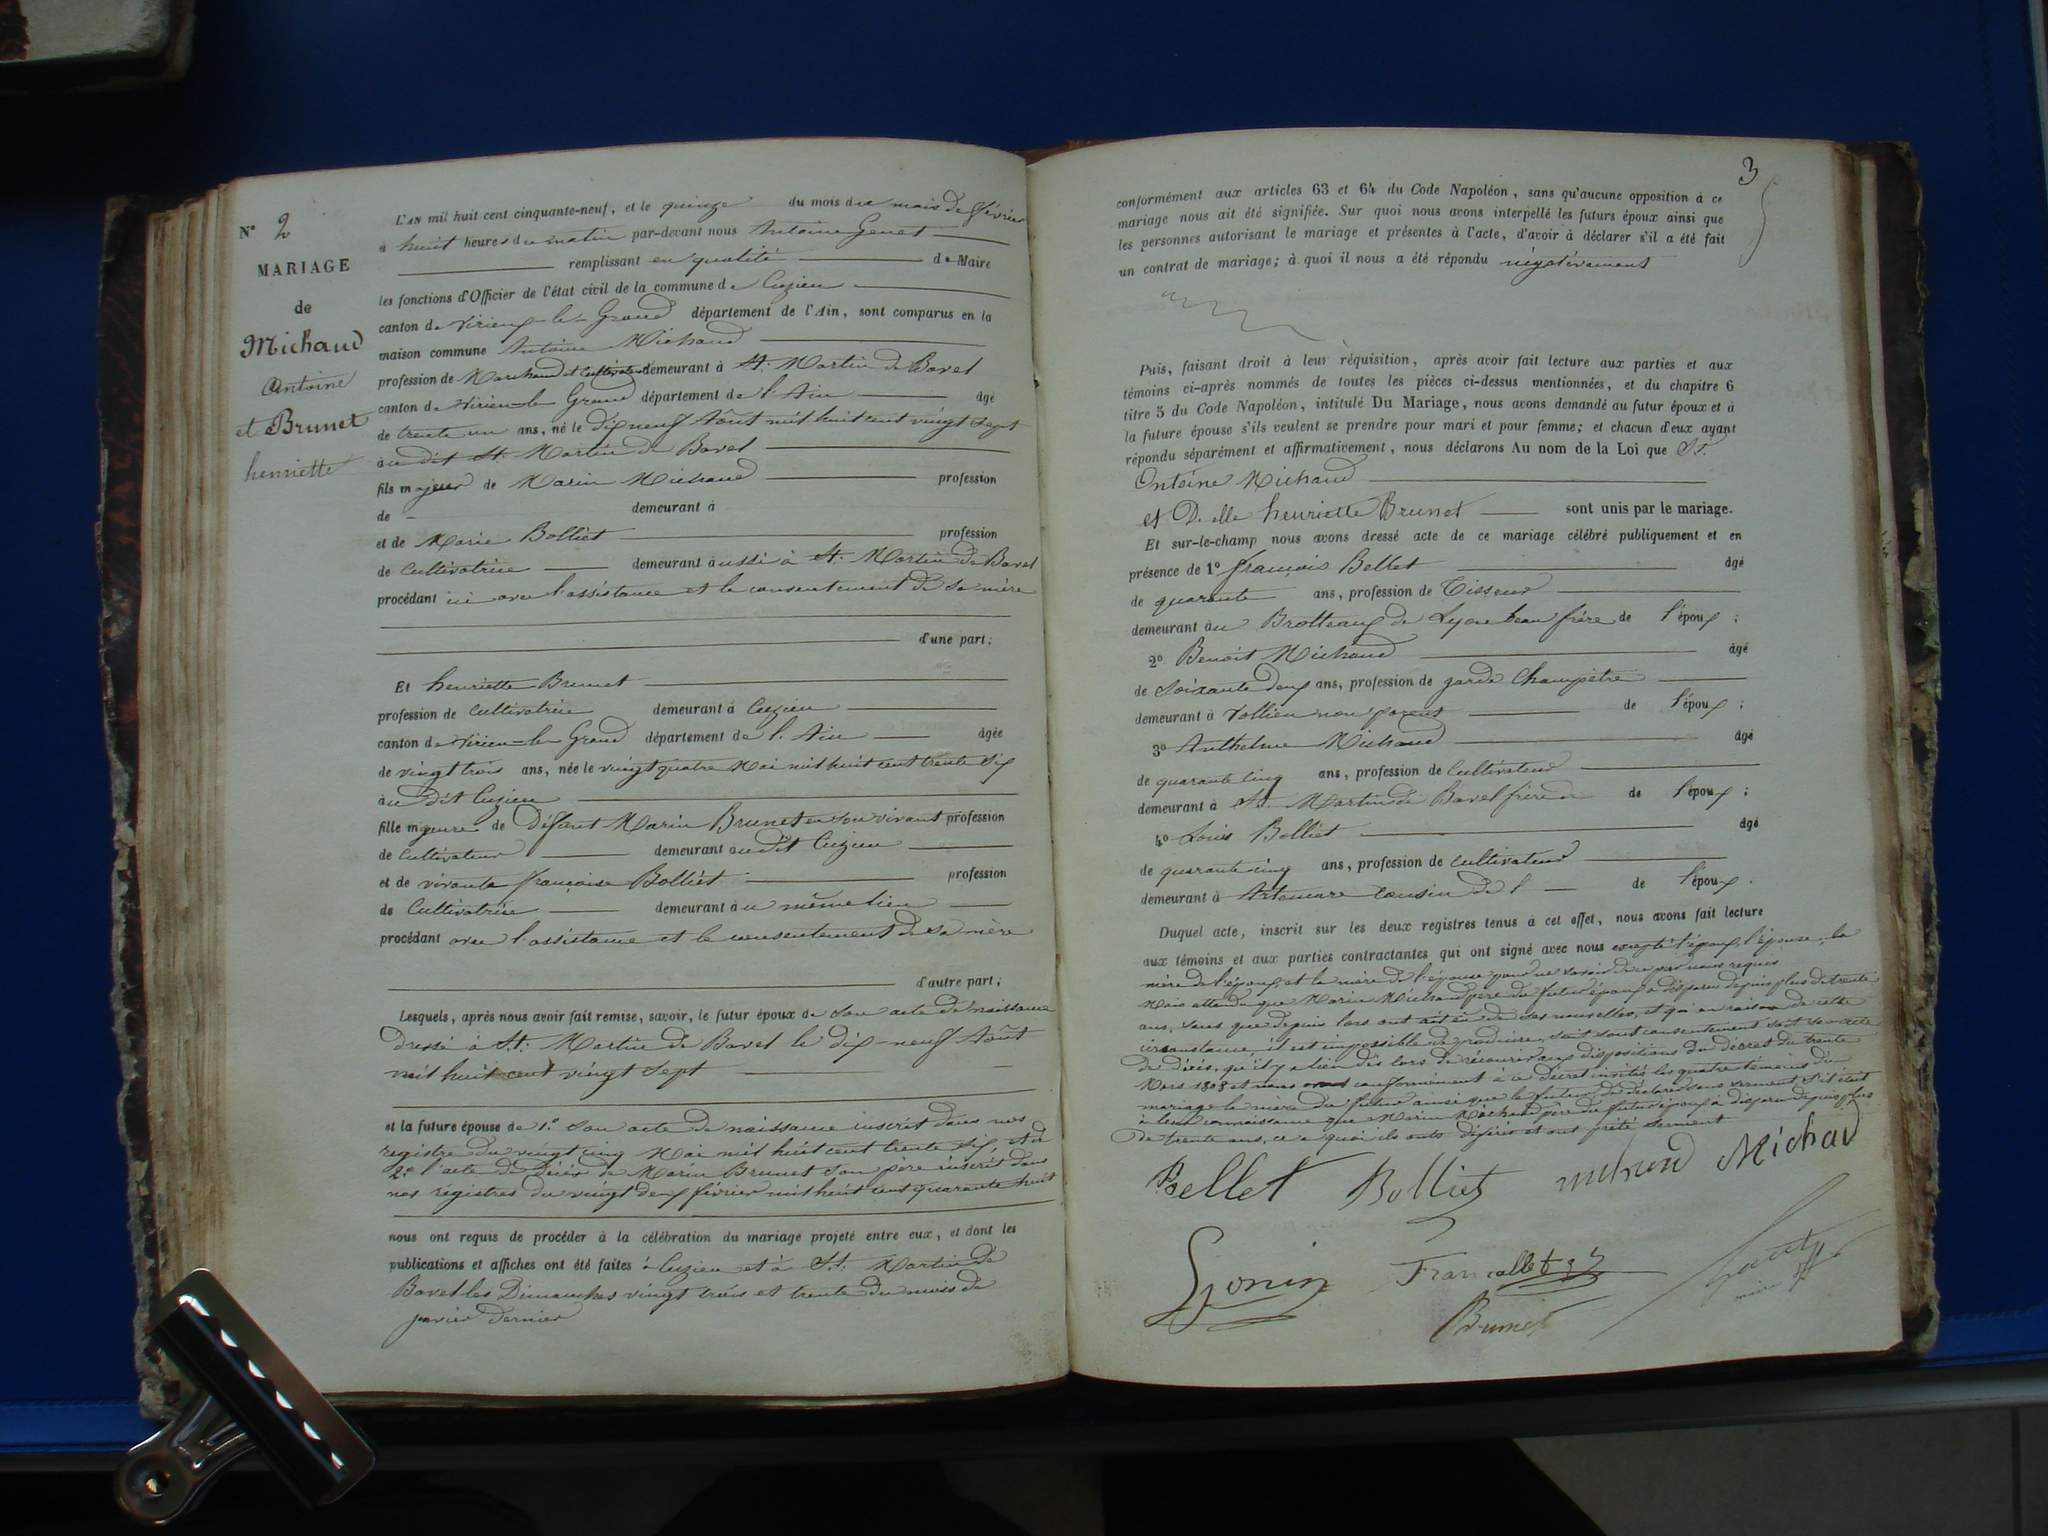 N° 2
MARIAGE
de
Michaud
Antoine
et Brunet
henriette
L'AN mil huit cent cinquante-neuf, et le quinze du mois de mois de février
à huit heures du matin par-devant nous Antoine Genet
remplissant en qualité de Maire
les fonctions d'Officier de l'état civil de la commune de Cuzieu
canton de Virieu-le-Grand département de l'Ain, sont comparus en la
maison commune Antoine Michaud
profession de Marchand et Cultivateur demeurant à St. Martin de Bavel
canton de Virieu-le Grand département de l'Ain âgé
de trente un ans, né le dix neuf Août mil huit cent vingt sept
au dit St. Martin de Bavel
fils majeur de Marin Michaud profession
de - demeurant à
et de Marie Bolliet profession
de Cultivatrice demeurant aussi à St. Martin de Bavel
procédant ici avec l'assistance et le consentement de sa mère
d'une part;
Et henriette Brunet
profession de Cultivatrice demeurant à Cuzieu
canton de Virieu-le-Grand département de l'Ain âgée
de vingt trois ans, née le vingt quatre Mai mil huit cent trente six
au dit Cuzieu
fille majeure de défunt Marin Brunet en son vivant profession
de Cultivateur demeurant au dit Cuzieu
et de vivante françoise Bolliet profession
de Cultivatrice demeurant au même lieu
procédant avec l'assistance et le consentement de sa mère
d'autre part;
Lesquels, après nous avoir fait remise, savoir, le futur époux de son acte de naissance
Dressé à St. Martin de Bavel le dix-neuf Août
mil huit cent vingt sept
et la future épouse de 1.° son acte de naissance inscrit dans nos
registre du vingt cinq Mai mil huit cent trente six, et de
2.° l'acte de décès de Marin Brunet son père inscrit dans
nos régistres du vingt deux février mil huit cent quarante huit
nous ont requis de procéder à la célébration du mariage projeté entre eux, et dont les
publications et affiches ont été faites à Cuzieu et à St. Martin de
Bavel les Dimanches vingt trois et trente du mois de
janvier dernier
3
conformément aux articles 63 et 64 du Code Napoléon, sans qu'aucune opposition à ce
mariage nous ait été signifiée. Sur quoi nous avons interpellé les futurs époux ainsi que
les personnes autorisant le mariage et présentes à l'acte, d'avoir à déclarer s'il a été fait
un contrat de mariage; à quoi il nous a été répondu négativement
Puis, faisant droit à leur réquisition, après avoir fait lecture aux parties et aux
témoins ci-après nommés de toutes les pièces ci-dessus mentionnées, et du chapitre 6
titre 5 du Code Napoléon, intitulé Du Mariage, nous avons demandé au futur époux et à
la future épouse s'ils veulent se prendre pour mari et pour femme; et chacun d'eux ayant
répondu séparément et affirmativement, nous déclarons Au nom de la Loi que Sr.
Antoine Michaud
et D.elle henriette Brunet sont unis par le mariage.
Et sur-le-champ nous avons dressé acte de ce mariage célébré publiquement et en
présence de 1° françois Bellet âgé
de quarante ans, profession de Tisseur
demeurant au Brotteaux de Lyon beau frère de l'époux;
2° Benoit Michaud âgé
de Soixante deux ans, profession de garde Champêtre
demeurant à Vollien non parent de l'époux;
3° Anthelme Michaud âgé
de quarante cinq ans, profession de Cultivateur
demeurant à St. Martin de Bavel frère de l'époux;
4° Louis Bolliet âgé
de quarante cinq ans, profession de cultivateur
demeurant à Artemare cousin de l de l'époux.
Duquel acte, inscrit sur les deux registres tenus à cet effet, nous avons fait lecture
aux témoins et aux parties contractantes qui ont signé avec nous excepté l'époux, l'épouse, la
mère de l'époux, et la mère de l'épouse pour ne savoir de ce par nous requis
Mais attendu que Marin Michaud père du futur époux a disparu depuis plus de trente
ans, sans que depuis lors ont ait eu de ses nouvelles, et qu'en raison de cette
circonstance il est impossible de produire, soit sont consentement soit son acte
de décès, qu'il y a lien dès lors de récourir aux dispositions du décret du trente
Mars 1808 et nous avons conformément à ce décret invités les quatre témoins du
mariage la mère du futur ainsi que le futur, de déclarer sous serment s'il était
à leur connaissance que Marin Michaud père du futur époux a disparu depuis plus
de trente ans, ce a quoi ils onts déféré et ont prêté serment
Bellet Bolliet michaud Michad
Gonin Francallet Genet
maire
Brunet